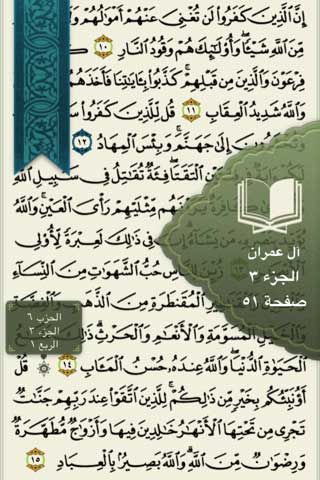 إِنَّ ٱلَّذِينَ كَفَرُوا۟ لَن تُغْنِىَ عَنْهُمْ أَمْوَٰلُهُمْ
مِّنَ ٱللَّهِ شَيْـًٔا ۖ وَأُو۟لَـٰٓئِكَ هُمْ وَقُودُ ٱلنَّارِ ١٠
فِرْعَوْنَ وَٱلَّذِينَ مِن قَبْلِهِمْ ۚ كَذَّبُوا۟ بِـَٔايَـٰتِنَا فَأَخَذَهُمُ
وَٱللَّهُ شَدِيدُ ٱلْعِقَابِ ١١ قُل لِّلَّذِينَ كَفَرُوا۟
وَتُحْشَرُونَ إِلَىٰ جَهَنَّمَ ۚ وَبِئْسَ ٱلْمِهَادُ ١٢
ٱلْتَقَتَا ۖ فِئَةٌ تُقَـٰتِلُ فِى سَبِيلِ ٱللَّهِ
مِّثْلَيْهِمْ رَأْىَ ٱلْعَيْنِ ۚ وَٱللَّهُ
فِى ذَٰلِكَ لَعِبْرَةً لِّأُو۟لِى
زُيِّنَ لِلنَّاسِ حُبُّ ٱلشَّهَوَٰتِ مِنَ ٱلنِّسَآءِ
ٱلْمُقَنطَرَةِ مِنَ ٱلذَّهَبِ وَٱلْفِضَّةِ
وَٱلْخَيْلِ ٱلْمُسَوَّمَةِ وَٱلْأَنْعَـٰمِ وَٱلْحَرْثِ ۗ ذَٰلِكَ
ٱلْحَيَوٰةِ ٱلدُّنْيَا ۖ وَٱللَّهُ عِندَهُۥ حُسْنُ ٱلْمَـَٔابِ ١٤ قُلْ
أَؤُنَبِّئُكُم بِخَيْرٍ مِّن ذَٰلِكُمْ ۚ لِلَّذِينَ ٱتَّقَوْا۟ عِندَ رَبِّهِمْ جَنَّـٰتٌ
تَجْرِى مِن تَحْتِهَا ٱلْأَنْهَـٰرُ خَـٰلِدِينَ فِيهَا وَأَزْوَٰجٌ مُّطَهَّرَةٌ
وَرِضْوَٰنٌ مِّنَ ٱللَّهِ ۗ وَٱللَّهُ بَصِيرٌۢ بِٱلْعِبَادِ ١٥
آل عمران
الجزء ٣
صفحة ٥١
الحزب ٦
الجزء ٣
الربع ١